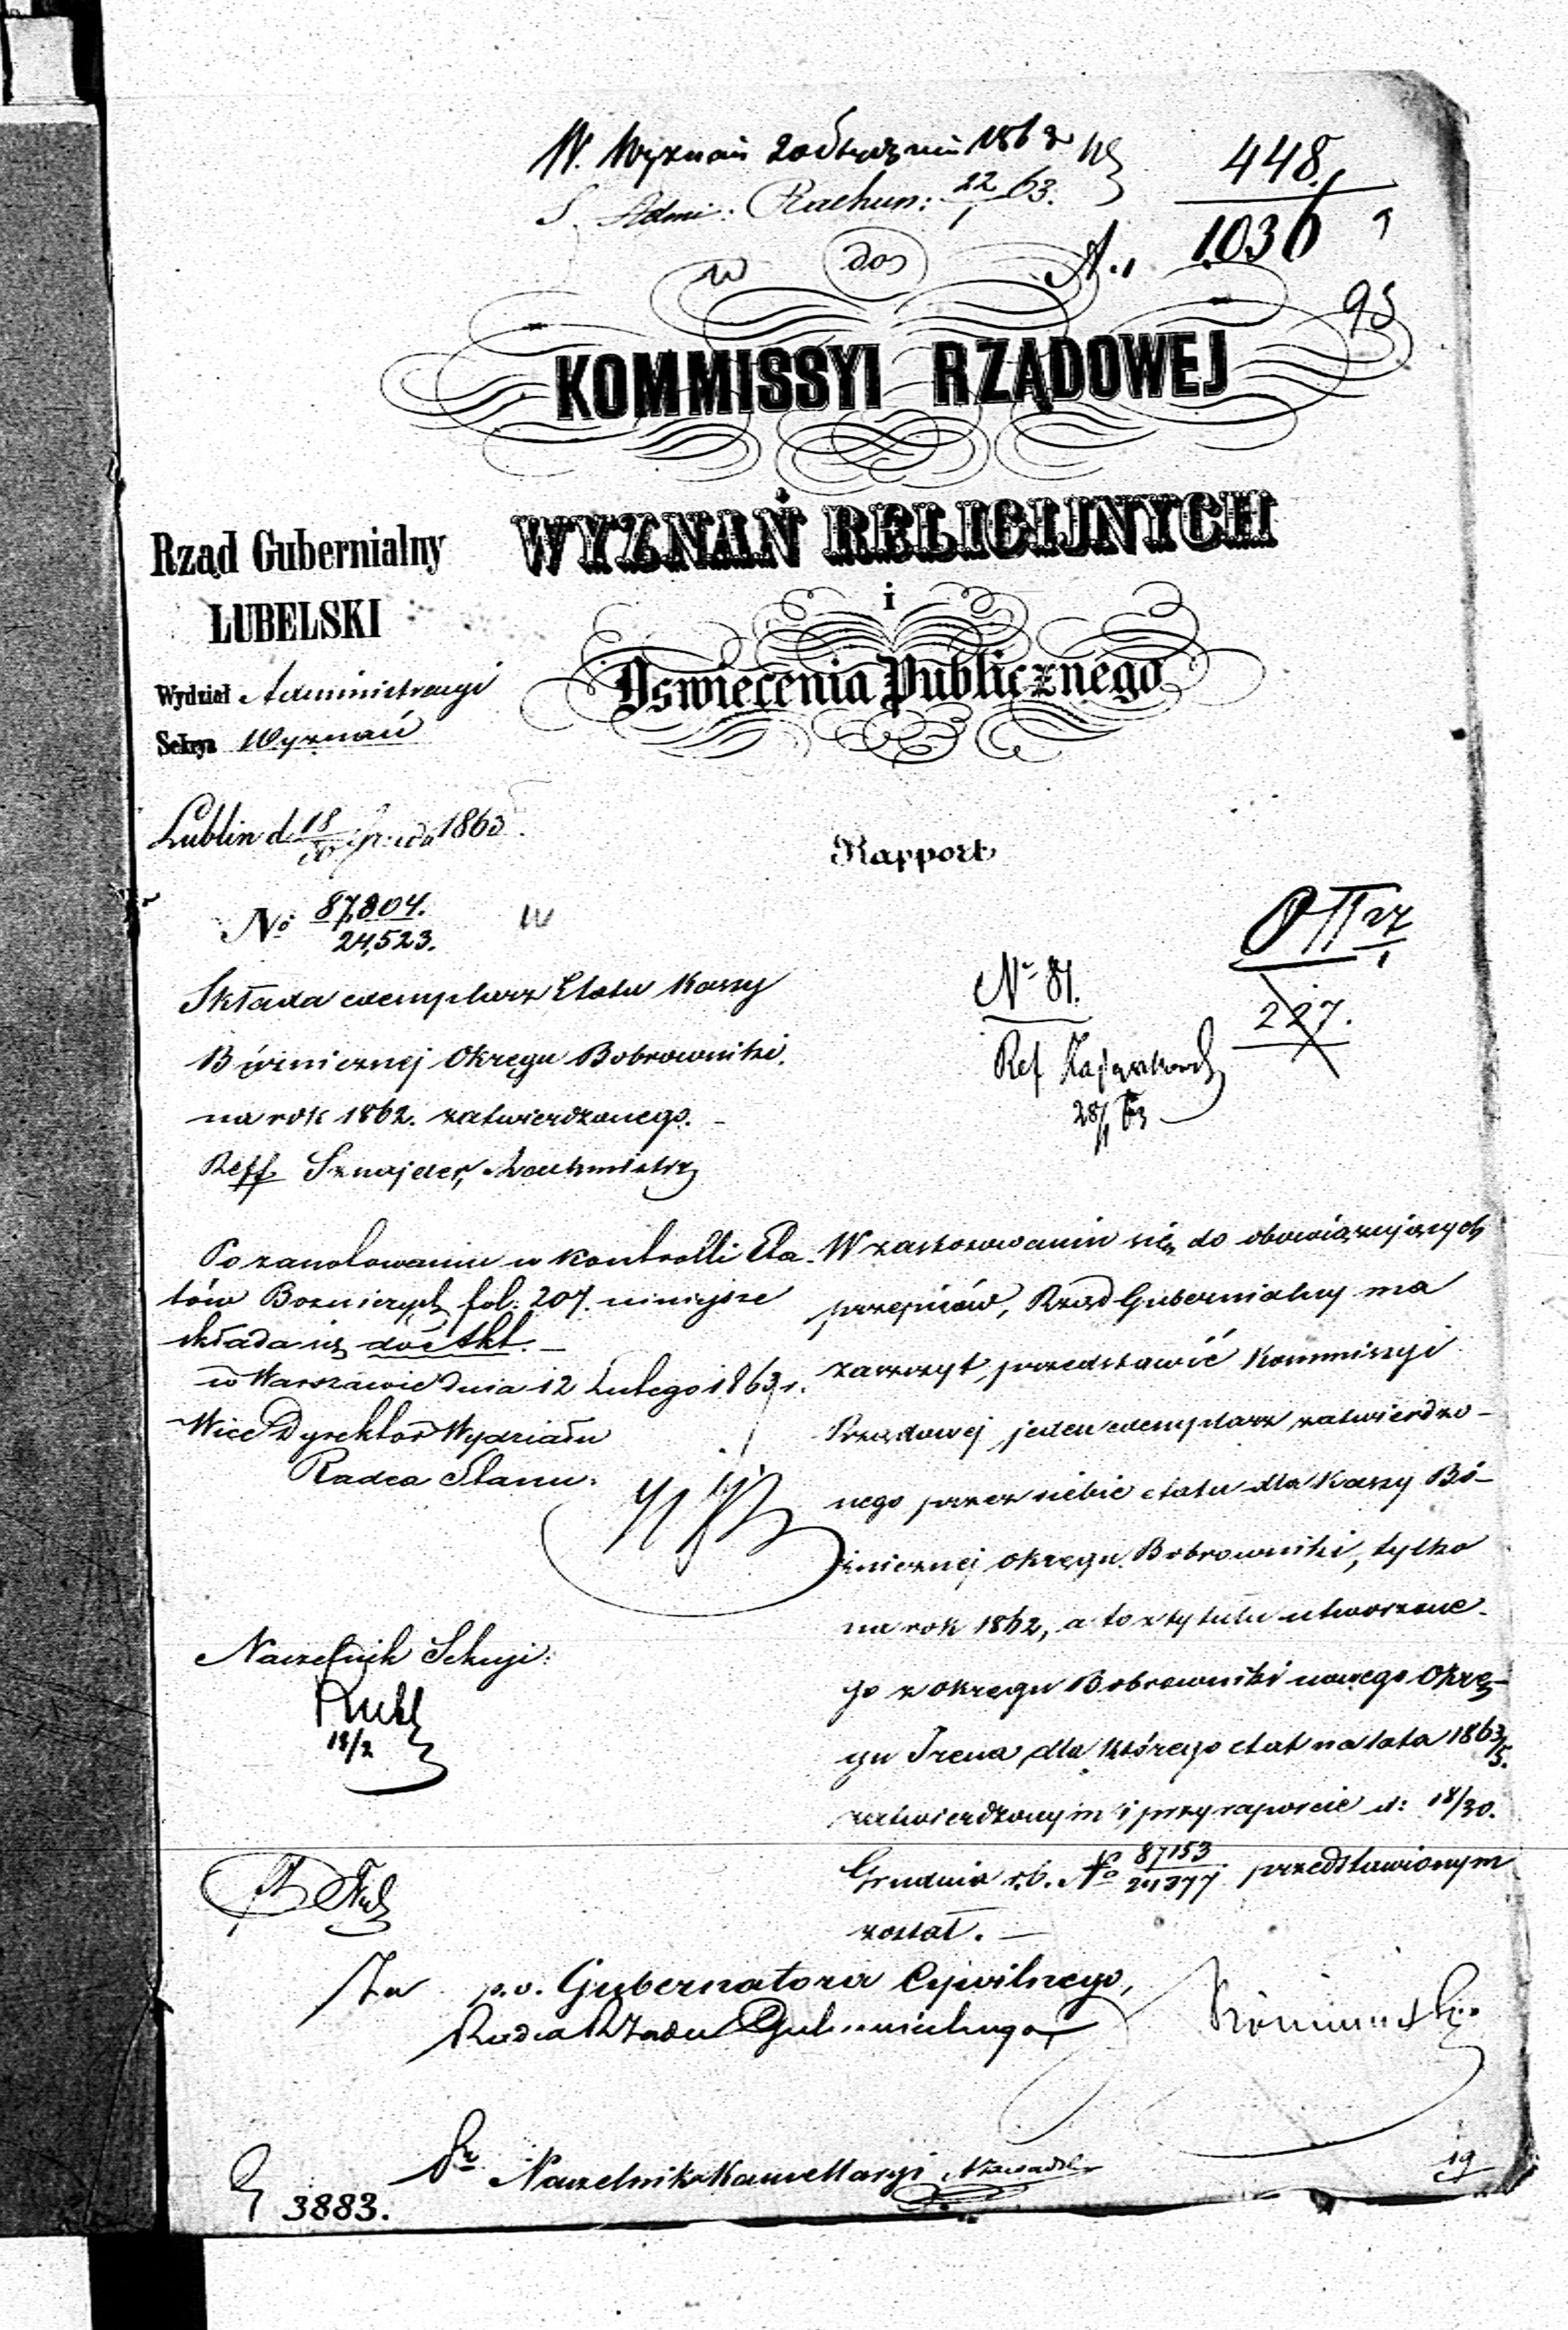 W. Wyznań 20 Stycznia 1863
S. Admi: Rachun: 22/1 63.
448.
1036
95
do
KOMMISSYI RZĄDOWEJ
WYZNAŃ RELIGIJNYCH
i
Oświecenia Publicznego
Rząd Gubernialny
LUBELSKI
Wydział Administracyi
Sekcya Wyznań
Lublin d 18/30 1863
Rapport
No 87,804./24,523.
Składa exemplarz Etatu Kassy
Bóżnicznej Okręgu Bobrowniki.
na rok 1862. zatwierdzonego.
Reff Sznajder,
No 81.
Ref
28/1 63
227.
Po zanotowaniu w Kontrolli Eta-
tów Bożniczych fol: 207. niniejsze
składa się do Akt.
w Warszawie dnia 12 Lutego 1863 r.
Wice Dyrektor Wydziału
Radca Stanu:
Naczelnik Sekcyi:
W zastosowaniu się do obowiązujących
przepisów, Rząd Gubernialny ma
zaszczyt przedstawić Kommissyi
Rządowej jeden exemplarz zatwierdzo-
nego przez siebie etatu dla Kassy Bó-
żnicznej okręgu Bobrowniki, tylko
na rok 1862, a to z tytułu utworzone-
go z okręgu Bobrowniki nowego Okrę-
gu Irena, dla którego etat na lata 1863/5.
zatwierdzonym i przy raporcie d: 18/30.
Grudnia r.b. No 87153/24377 przedstawionym
został.
Za p.o. Gubernatora Cywilnego,
Radca Rządu Gubernialnego
Naczelnik Kancellaryi
3883.
19